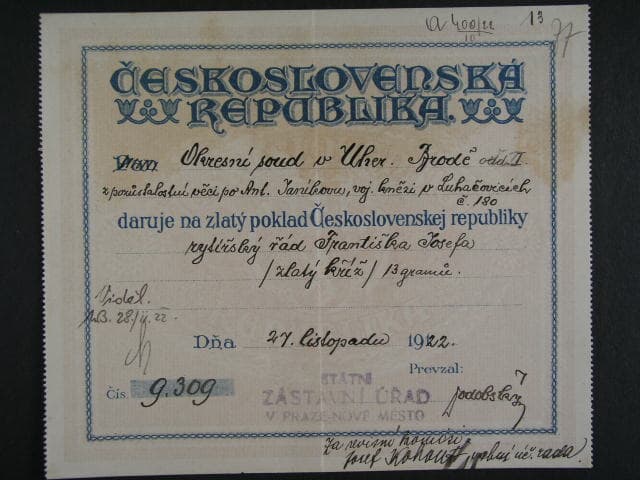 A 400/22 13 77
10
ČESKOSLOVENSKÁ
REPUBLIKA.
Okresní soud v Uher. Brodě odd. I
z pozůstalostní věci po Ant. Janíkovu, voj. knězi v Luhačovicích
č. 180
daruje na zlatý poklad Československej republiky
rytířský řád Františka Josefa
/zlatý kříž/ 13 gramů.
Viděl.
28./11. 22
Dňa 27. listopadu 1922.
Prevzal:
Čís. 9.309
STÁTNÍ
ZÁSTAVNÍ ÚŘAD
V PRAZE-NOVÉ MĚSTO
Za revisní komisi
Josef Kohout, vrchní úč. rada